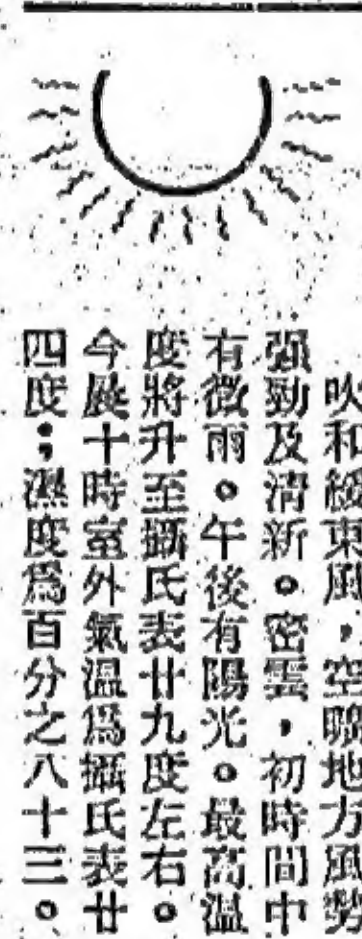 吹和緩東風，空曠地方風勢
强勁及清新。密雲，初時間中
有微雨。午後有陽光。最高溫
度將升至攝氏表廿九度左右。
今晨十時室外氣溫爲攝氏表廿
四度；濕度爲百分之八十三。